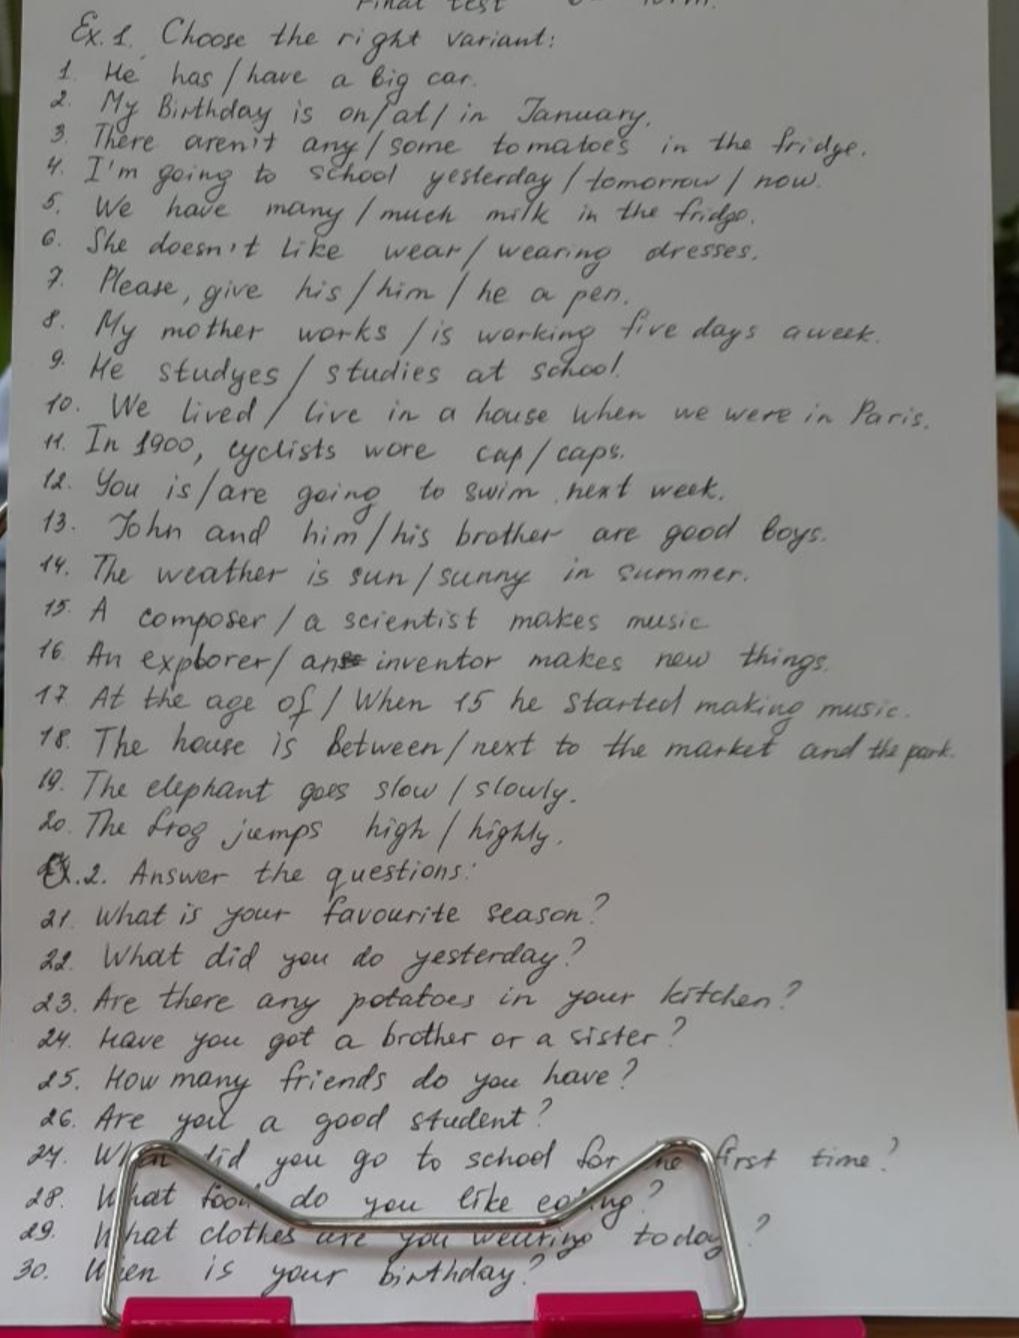 Final test
Ex. 1. Choose the right variant:
1. He has / have a big car.
2. My Birthday is on / at / in January.
3. There aren't any / some tomatoes in the fridge.
4. I'm going to school yesterday / tomorrow / now.
5. We have many / much milk in the fridge.
6. She doesn't like wear / wearing dresses.
7. Please, give his / him / he a pen.
8. My mother works / is working five days a week.
9. He studyes / studies at school.
10. We lived / live in a house when we were in Paris.
11. In 1900, cyclists wore cap / caps.
12. You is / are going to swim next week.
13. John and him / his brother are good boys.
14. The weather is sun / sunny in summer.
15. A composer / a scientist makes music
16. An explorer / an inventor makes new things.
17. At the age of / When 15 he started making music.
18. The house is between / next to the market and the park.
19. The elephant goes slow / slowly.
20. The frog jumps high / highly.
Ex. 2. Answer the questions:
21. What is your favourite season?
22. What did you do yesterday?
23. Are there any potatoes in your kitchen?
24. Have you got a brother or a sister?
25. How many friends do you have?
26. Are you a good student?
27. When did you go to school for the first time?
28. What food do you like eating?
29. What clothes are you wearing today?
30. When is your birthday?